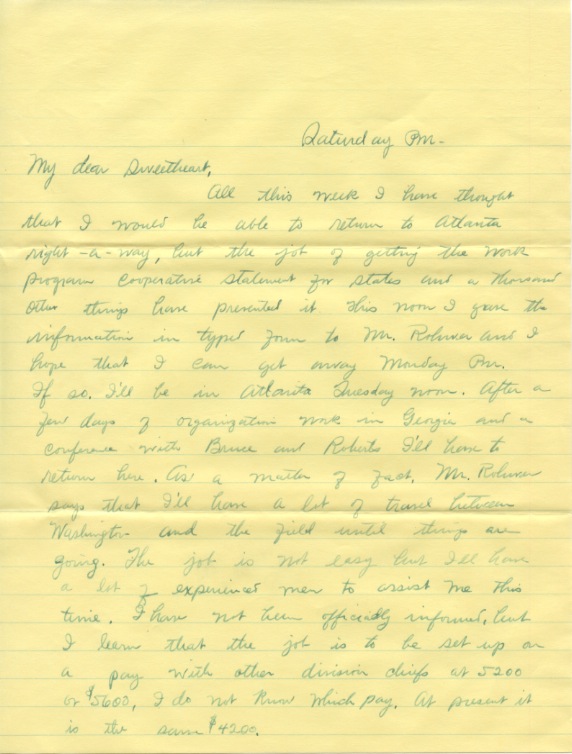 Saturday Pm-
My dear Sweetheart,
All this week I have thought
that I would be able to return to Atlanta
right-a-way, but the job of getting the work
program cooperative statement for states and a thousand
other things have presented it This noon I gave the
information in typed form to Mr. Rohwer and I
hope that I can get away Monday Pm.
If so, I'll be in Atlanta Tuesday noon. After a
few days of organization work in Georgia and a
conference with Bruce and Roberts I'll have to
return here. As a matter of fact, Mr. Rohwer
says that I'll have a lot of travel between
Washington and the field until things are
going. The job is not easy but I'll have
a lot of experienced men to assist me this
time. I have not been officially informed, but
I learn that the job is to be set up on
a pay with other division chiefs at 5200
or $5600, I do not know which pay. At present it
is the same $4200.